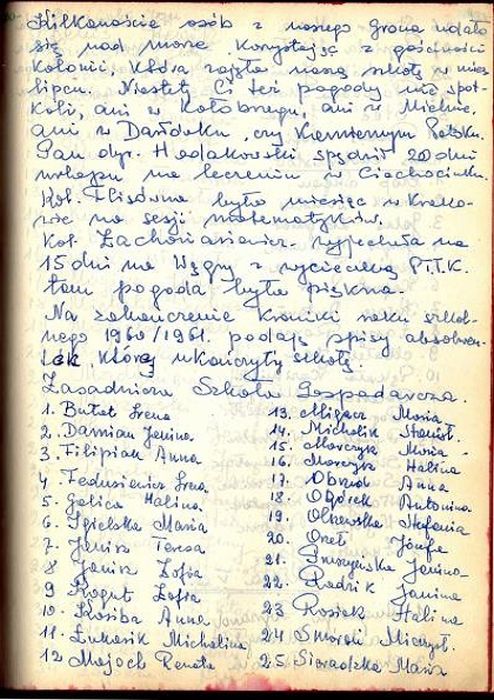 Kilkanaście osób z naszego Grona udało
się nad morze, korzystając z gościnności
Kolonii, która zajęła naszą szkołę w mies.
lipcu. Niestety Ci też pogody nie spot-
kali, ani w Kołobrzegu, ani w Mielnie,
ani w Darłówku, czy Kamiennym Potoku.
Pan dyr. Hadakowski spędził 20 dni
urlopu na leczeniu w Ciechocinku.
Kol. Flisówna była miesiąc w Krako-
wie na sesji matematyków.
Kol. Zachoriasiewicz wyjechała na
15 dni na Węgry z wycieczką P.T.T.K.
tam pogoda była piękna.
Na zakończenie Kroniki roku szkol-
nego 1960/1961. podaję spisy absolwen-
tek które ukończyły szkołę.
Zasadnicza Szkoła Gospodarcza.
1. Butat Irena
2. Damian Janina
3. Filipiak Anna
4. Fedusiewicz Irena
5. Galica Halina
6. Igielska Maria
7. Janisz Teresa
8 Janisz Zofia
9 Kogut Zofia
10. Kosiba Anna
11. Łukasik Michalina
12 Majoch Renata
13. Migacz Maria
14. Michalik Stanisł.
15. Marczyk Maria
16. Marczyk Halina
17. Obrzud Anna
18. Ogórek Antonina
19. Olszewska Stefania
20. Orzeł Józefa
21. Pruszyńska Janina
22. Radzik Janina
23 Rosiek Halina
24 Smoroń Mieczysł.
25 Sieradzka Maria